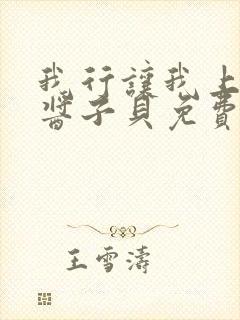 我行讓我上
醬子貝免費
王雪濤